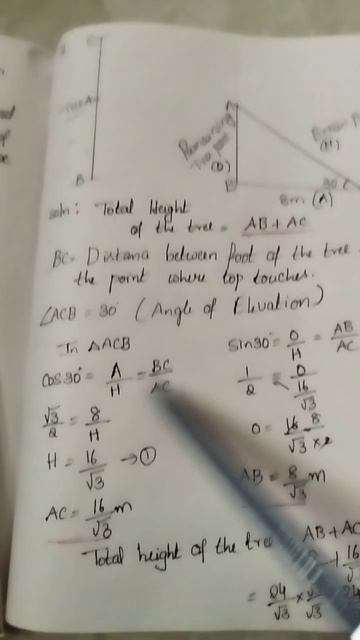 TREE
B
Remaining
Tree part
(O)
(H)
B
8m (A)
30°
C
soln: Total Height
of the tree = AB + AC
BC = Distana between foot of the tree
the point where top touches.
∠ACB = 30° (Angle of Elevation)
In △ACB
Cos30° = A/H = BC/AC
√3/2 = 8/H
H = 16/√3 → ①
AC = 16/√3 m
Sin30° = O/H = AB/AC
1/2 = O/(16/√3)
O = 16 8/√3 × 2
AB = 8/√3 m
Total height of the tree AB + AC
+ 16
= 24/√3 ×